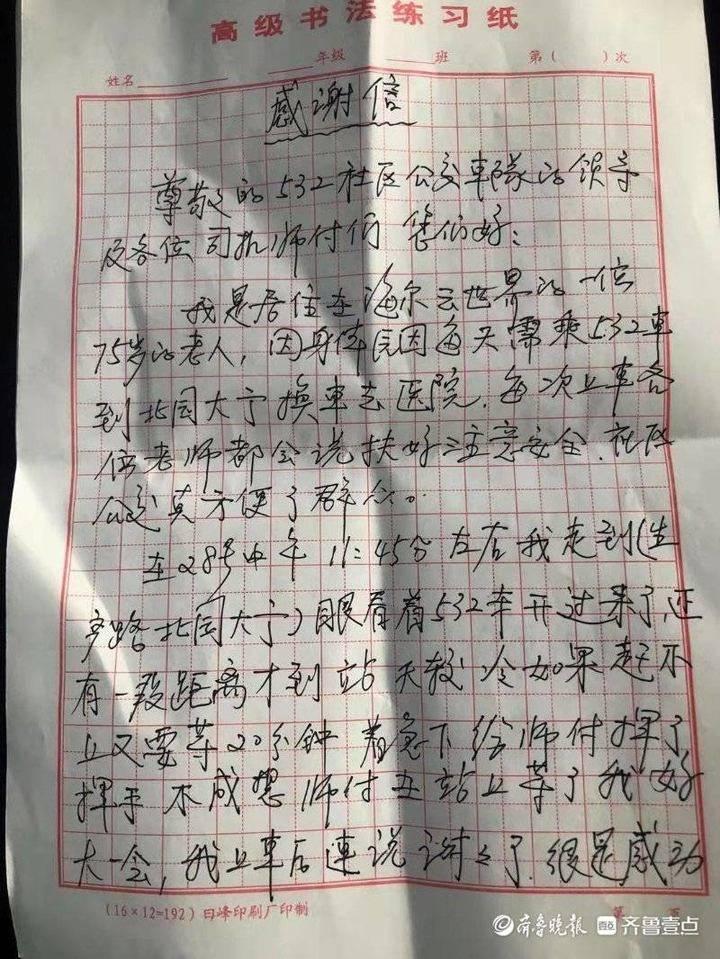 高级书法练习纸
姓名 年级 班 第( )次
感谢信
尊敬的532社区公交车队的领导
及各位司机师付们 您们好:
我是居住在海尔云世界的一位
75岁的老人，因身体原因每天需乘532车
到北园大宁换车去医院.每次上车各
位老师都会说扶好注意安全.社区
公交真方便了群众。
在28号中午11:45分左右我走到(生
产路北园大宁)眼看着532车开过来了,还
有一段距离才到站 天较冷如果赶不
上又要等20分钟 着急下给师付挥了
挥手 不成想师付在站上等了我好
大一会,我上车后连说谢々了.很是感动
(16×12=192) 日峰印刷厂印制
第 页
齐鲁晚报 齐鲁壹点